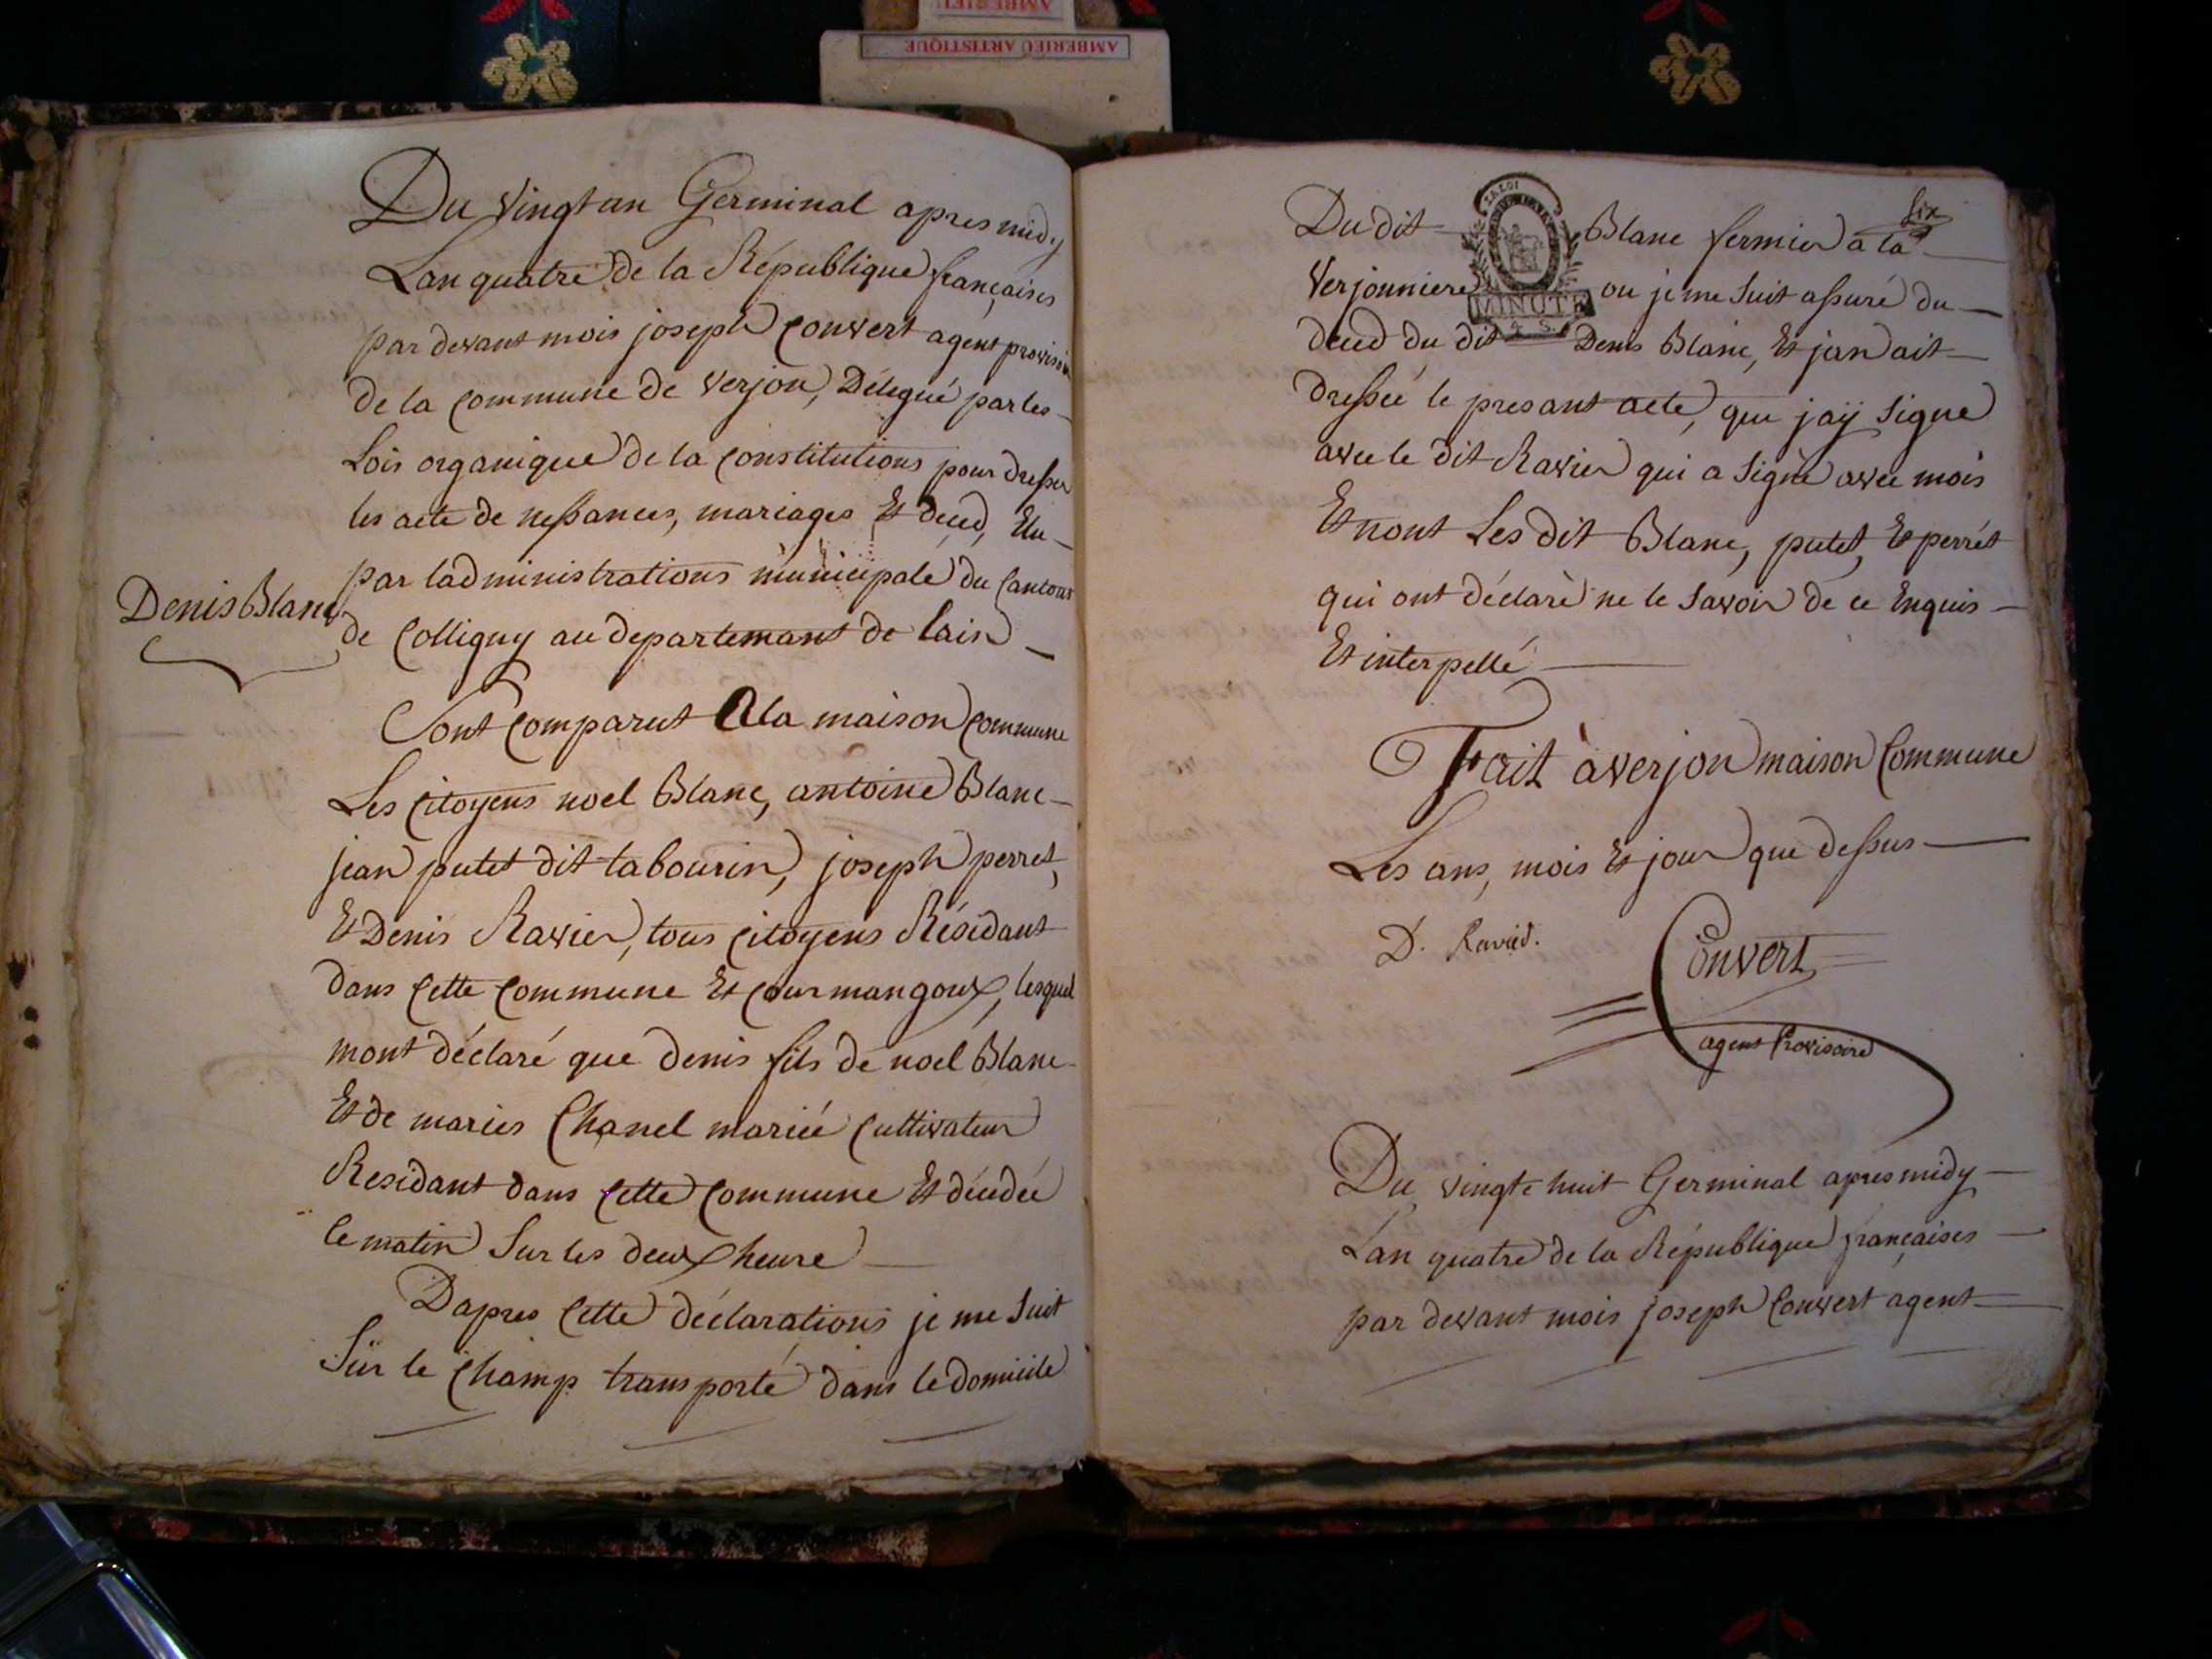 AMBERIEU
AMBERIEU ARTISTIQUE
Du vingt un Germinal apres midy
Lan quatre de la République françaises
par devant mois joseph Convert agent provisoir
de la commune de verjon, Délegué par les
Lois organique de la Constitutions pour dresser
les acte de nessances, mariages Et deced, Elu
par ladministrations municipale du Canton
de Colligny au departemant de lain
Denis Blanc
Sont Comparut a la maison Commune
Les Citoyens noel Blanc, antoine Blanc
jean putet dit tabourin, joseph perret,
Et Denis Ravier, tous Citoyens Résidant
dans Cette Commune Et Courmangoux, lesquel
mont déclaré que denis fils de noel Blanc
Et de maries Chanel mariée Cultivateur
Residant dans Cette Commune Et décedée
le matin Sur les deux heure
Dapres Cette déclarations je me Suit
Sur le Champ transporté dans le domicile
six
Du dit Blanc fermier a la
Verjonniere ou je me Suit assuré du
deced du dit Denis Blanc, Et jan ait
dressée le presant acte, que jaÿ Signe
avec le dit Ravier qui a Signè avec mois
Et nont Les dit Blanc, putet, Et perrét
qui ont déclarè ne le Savoir de ce Enquis
Et interpellé
LA LOI
MINUTE
4 S.
Fait à verjon maison Commune
Les ans, mois Et jour que dessus
D. Ravier.
Convert
agent Provisoire
Du vingte huit Germinal apres midy
Lan quatre de la République françaises
par devant mois joseph Convert agent